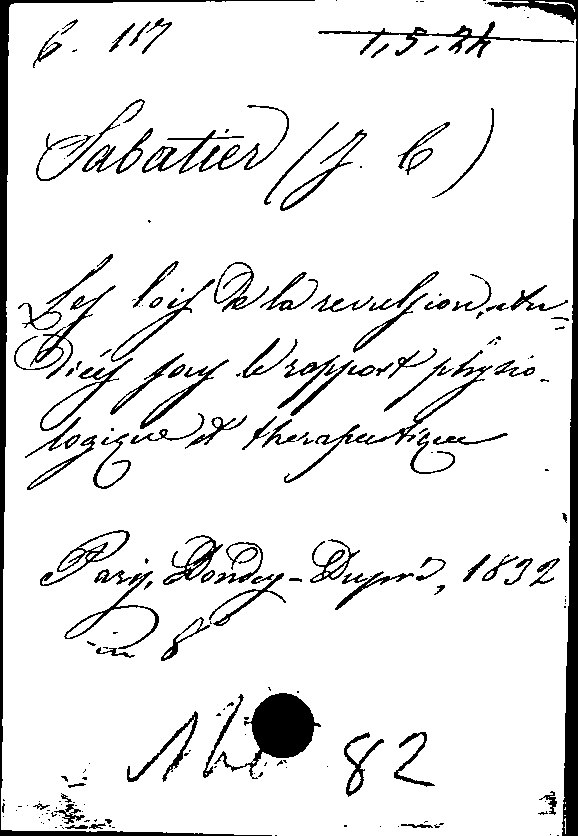 C. 117 1, 5, 24
Sabatier (J. C)
Les lois de la revulsion, étu-
diées sous le rapport physio-
logique et therapeutique
Paris, Dondey-Dupré, 1832
in 8°
82